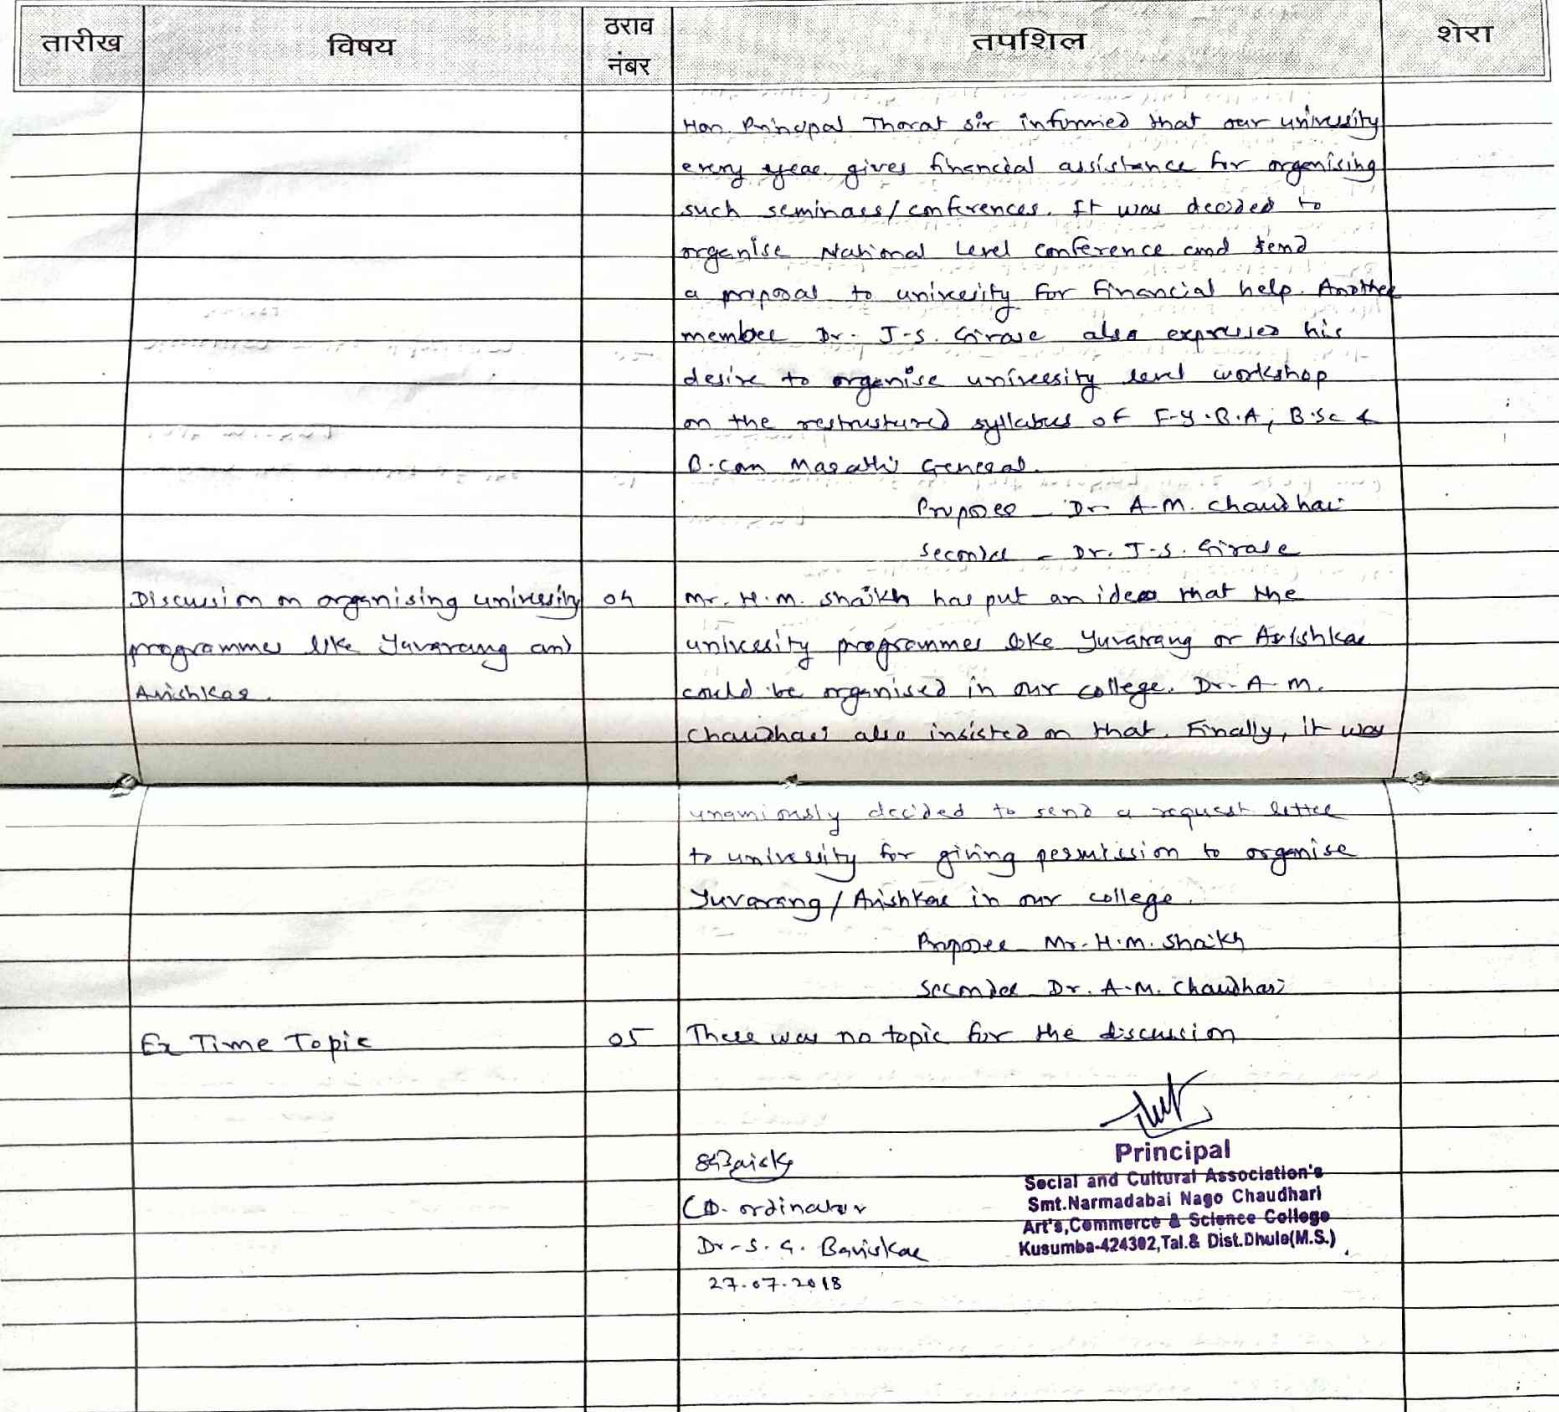 तारीख विषय ठराव नंबर तपशिल शेरा
Hon. Principal Thorat sir informed that our university
every year gives financial assistance for organising
such seminars/conferences. It was decided to
organise National Level conference and send
a proposal to university for financial help. Another
member Dr. J-S. Girase also expresses his
desire to organise university level workshop
on the restrustured syllabus of F.Y.B.A, B.Sc &
B.com Marathi General.
Proposer - Dr A.M. Chaudhari
Seconder - Dr. J-S. Girase
Discussion on organising university 04 Mr. H.M. Shaikh has put an idea that the
programmes like Yuvarang and university programmes like Yuvarang or Avishkar
Avishkar. could be organised in our college. Dr. A-M.
Chaudhari also insisted on that. Finally, it was
unamiously decided to send a request letter
to university for giving permission to organise
Yuvarang/Avishkar in our college.
Proposer Mr. H.M. Shaikh
Seconder Dr. A.M. Chaudhari
Ex Time Topic 05 There was no topic for the discussion
Principal
Social and Cultural Association's
Smt.Narmadabai Nago Chaudhari
Art's,Commerce & Science College
Kusumba-424302,Tal.& Dist.Dhule(M.S.)
Co-ordinator
Dr-S. G. Baviskar
27.07.2018